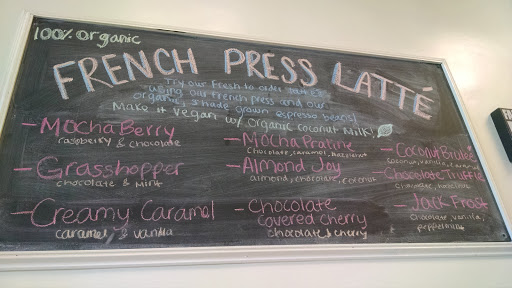 100% Organic
FRENCH PRESS LATTÉ
Try our fresh to order lattés
using our french press and our
organic, shade grown espresso beans!
Make it vegan w/ organic coconut Milk!
- MochaBerry
raspberry & chocolate
- Grasshopper
chocolate & Mint
- Creamy Caramel
caramel & vanilla
- Mocha Praline
chocolate, caramel, hazelnut
- Almond Joy
almond, chocolate, coconut
- Chocolate
covered cherry
chocolate & cherry
- Coconut Brulee
coconut, vanilla, caramel
- Chocolate Truffle
chocolate, hazelnut
- Jack Frost
chocolate, vanilla,
peppermint